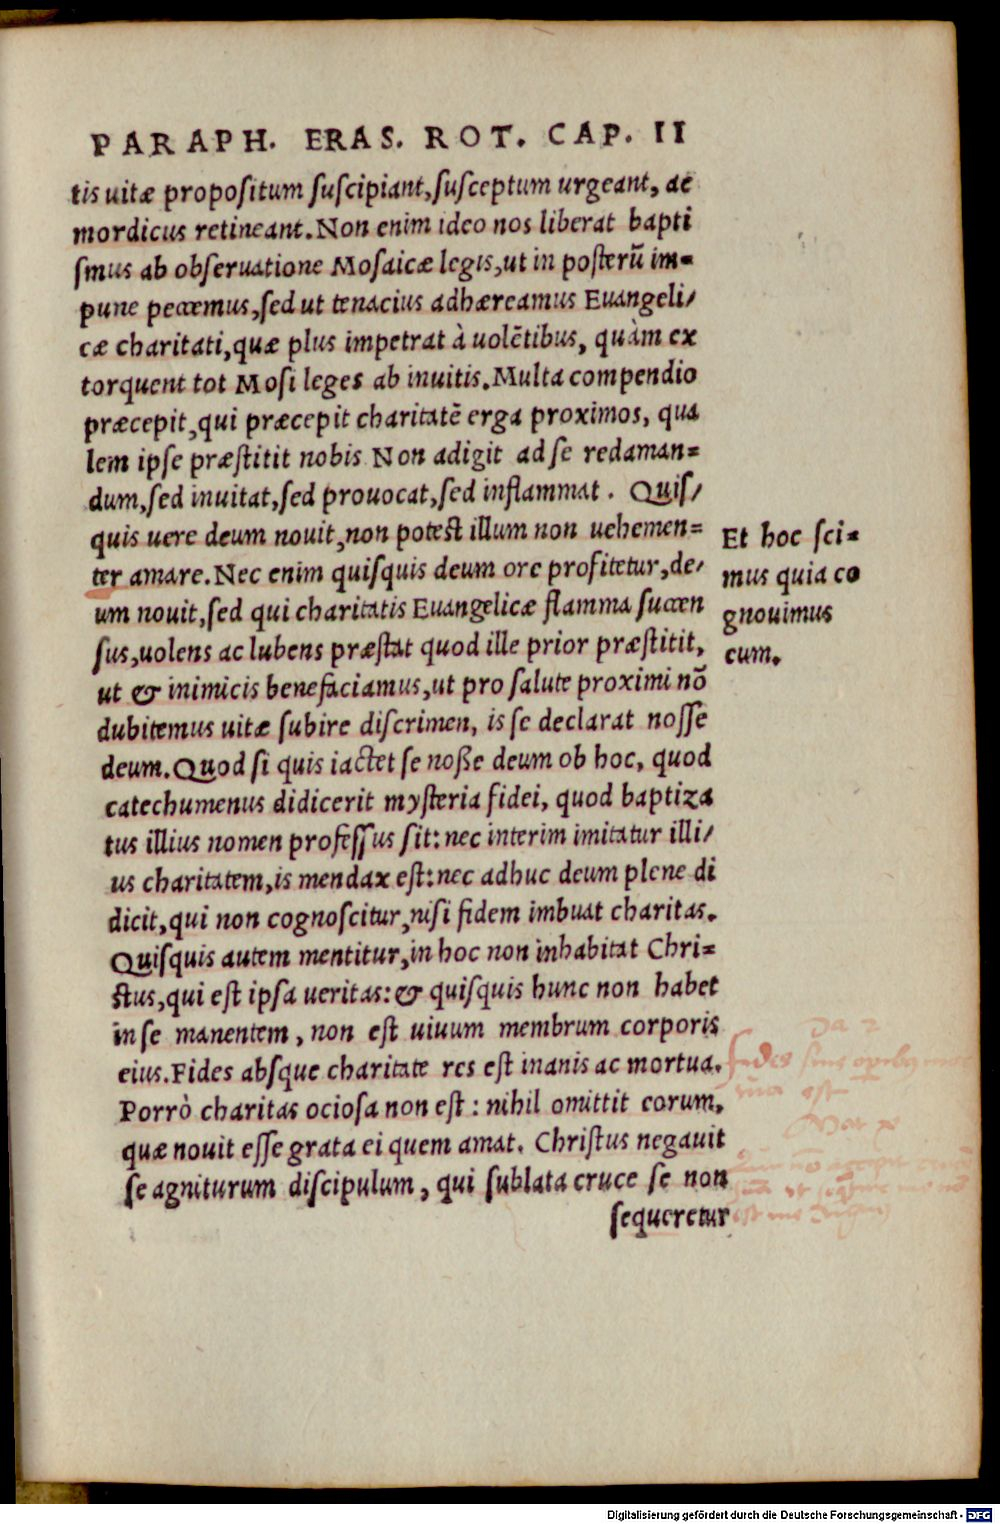 PARAPH. ERAS. ROT. CAP. II
tis uitæ propositum suscipiant, susceptum urgeant, ac
mordicus retineant. Non enim ideo nos liberat bapti
smus ab obseruatione Mosaicæ legis, ut in posterũ im=
pune peccemus, sed ut tenacius adhæreamus Euangeli/
cæ charitati, quæ plus impetrat à uolẽtibus, quàm ex
torquent tot Mosi leges ab inuitis. Multa compendio
præcepit, qui præcepit charitatẽ erga proximos, qua
lem ipse præstitit nobis Non adigit ad se redaman=
dum, sed inuitat, sed prouocat, sed inflammat. Quis/
quis uere deum nouit, non potest illum non uehemen=
ter amare. Nec enim quisquis deum ore profitetur, de/
um nouit, sed qui charitatis Euangelicæ flamma succen
sus, uolens ac lubens præstat quod ille prior præstitit,
ut & inimicis benefaciamus, ut pro salute proximi nõ
dubitemus uitæ subire discrimen, is se declarat nosse
deum. Quod si quis iactet se nosse deum ob hoc, quod
catechumenus didicerit mysteria fidei, quod baptiza
tus illius nomen professus sit: nec interim imitatur illi/
us charitatem, is mendax est: nec adhuc deum plene di
dicit, qui non cognoscitur, nisi fidem imbuat charitas.
Quisquis autem mentitur, in hoc non inhabitat Chri=
stus, qui est ipsa ueritas: & quisquis hunc non habet
in se manentem, non est uiuum membrum corporis
eius. Fides absque charitate res est inanis ac mortua.
Porrò charitas ociosa non est: nihil omittit eorum,
quæ nouit esse grata ei quem amat. Christus negauit
se agniturum discipulum, qui sublata cruce se non
sequeretur
Et hoc sci=
mus quia co
gnouimus
eum.
Fides sine
est
Digitalisierung gefördert durch die Deutsche Forschungsgemeinschaft - DFG